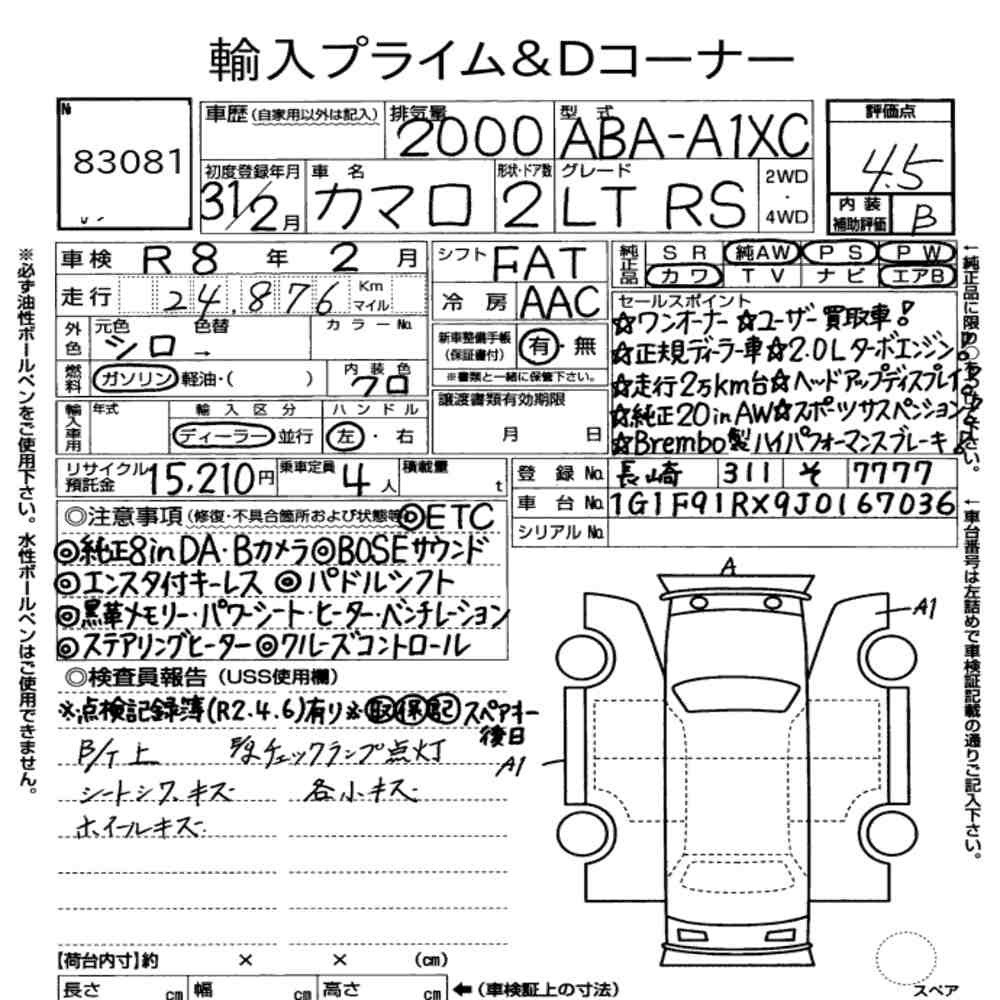 輸入プライム&Dコーナー
№ 83081
車歴(自家用以外は記入) 排気量 2000 型式 ABA-A1XC 評価点 4.5
初度登録年月 31/2月 車名 カマロ 形状・ドア数 2 グレード LT RS 2WD・4WD 内装補助評価 B
車検 R8年2月 シフト FAT 純正品 SR 純AW PS PW
カワ TV ナビ エアB
走行 24,876 Km マイル 冷房 AAC
外色 元色 シロ 色替 → カラーNo.
燃料 ガソリン 軽油・( ) 内装色 クロ
新車整備手帳(保証書付) 有・無
※書類と一緒に保管下さい。
輸入車用 年式 輸入区分 ディーラー 並行 ハンドル 左・右
譲渡書類有効期限 月 日
セールスポイント
☆ワンオーナー ☆ユーザー買取車!
☆正規ディーラー車☆2.0Lターボエンジン
☆走行2万km台☆ヘッドアップディスプレイ
☆純正20inAW☆スポーツサスペンション
☆Brembo製ハイパフォーマンスブレーキ
リサイクル預託金 15,210円 乗車定員 4人 積載量 t
登録No. 長崎 311 そ 7777
車台No. 1G1F91RX9J0167036
シリアルNo.
◎注意事項(修復・不具合箇所および状態等) ◎ETC
◎純正8inDA・Bカメラ◎BOSEサウンド
◎エンスタ付キーレス ◎パドルシフト
◎黒革メモリー・パワーシート・ヒーター・ベンチレーション
◎ステアリングヒーター◎クルーズコントロール
◎検査員報告(USS使用欄)
※点検記録簿(R2.4.6)有り※取保記 スペアキー
後日
B/T上 チェックランプ点灯
シートシワ、キズ 各小キズ
ホイールキズ
A
A1
A1
【荷台内寸】約 × × (cm)
長さ cm 幅 cm 高さ cm ←(車検証上の寸法)
スペア
※必ず油性ボールペンをご使用下さい。水性ボールペンはご使用できません。
←純正品に限り○
←車台番号は左詰めで車検証記載の通りご記入下さい。